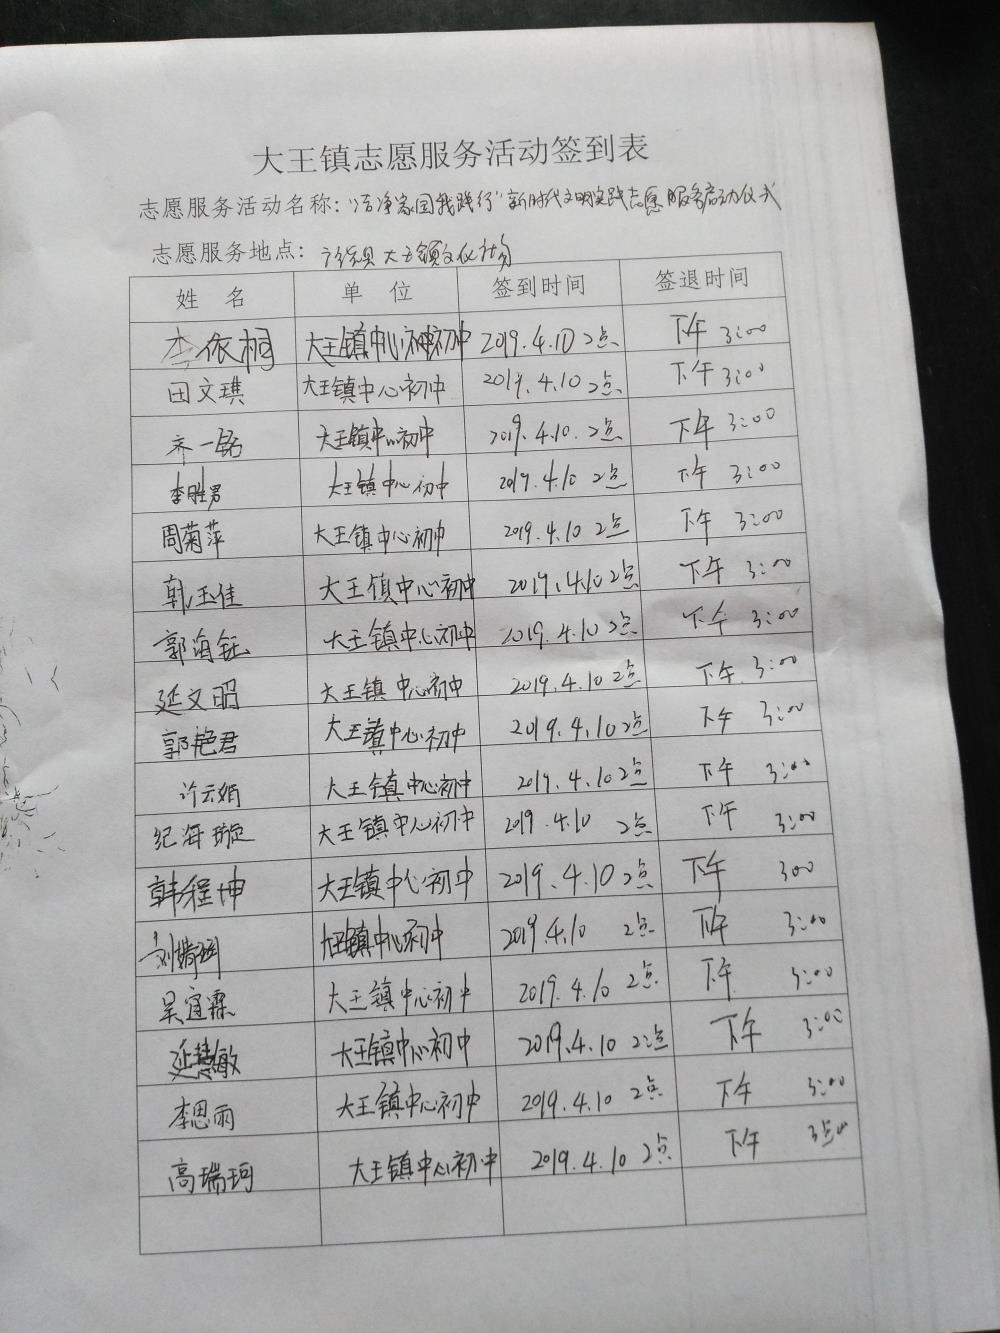 大王镇志愿服务活动签到表
志愿服务活动名称："洁净家园我践行"新时代文明实践志愿服务启动仪式
志愿服务地点：大王镇文化
姓 名 单 位 签到时间 签退时间
李依桐 大王镇中心初中 2019.4.10 2点 下午 3:00
田文琪 大王镇中心初中 2019.4.10 2点 下午 3:00
齐一铭 大王镇中心初中 2019.4.10. 2点 下午 3:00
李胜男 大王镇中心初中 2019.4.10 2点 下午 3:00
周菊萍 大王镇中心初中 2019.4.10 2点 下午 3:00
韩玉佳 大王镇中心初中 2019.4.10 2点 下午 3:00
郭海钰 大王镇中心初中 2019.4.10 2点 下午 3:00
延文昭 大王镇中心初中 2019.4.10 2点 下午 3:00
郭艳君 大王镇中心初中 2019.4.10 2点 下午 3:00
许云娟 大王镇中心初中 2019.4.10 2点 下午 3:00
纪海璇 大王镇中心初中 2019.4.10 2点 下午 3:00
韩程坤 大王镇中心初中 2019.4.10 2点 下午 300
刘婧 大王镇中心初中 2019.4.10 2点 下午 3:00
吴宜霖 大王镇中心初中 2019.4.10 2点 下午 3:00
延慧敏 大王镇中心初中 2019.4.10 2点 下午 3:00
李思雨 大王镇中心初中 2019.4.10 2点 下午 3:00
高瑞珂 大王镇中心初中 2019.4.10 2点 下午 3点00